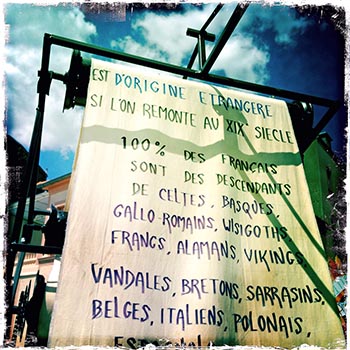 EST D'ORIGINE ETRANGERE
SI L'ON REMONTE AU XIX SIECLE
100% DES FRANÇAIS
SONT DES DESCENDANTS
DE CELTES, BASQUES,
GALLO-ROMAINS, WISIGOTHS,
FRANGS, ALAMANS, VIKINGS,
VANDALES, BRETONS, SARRASINS,
BELGES, ITALIENS, POLONAIS,